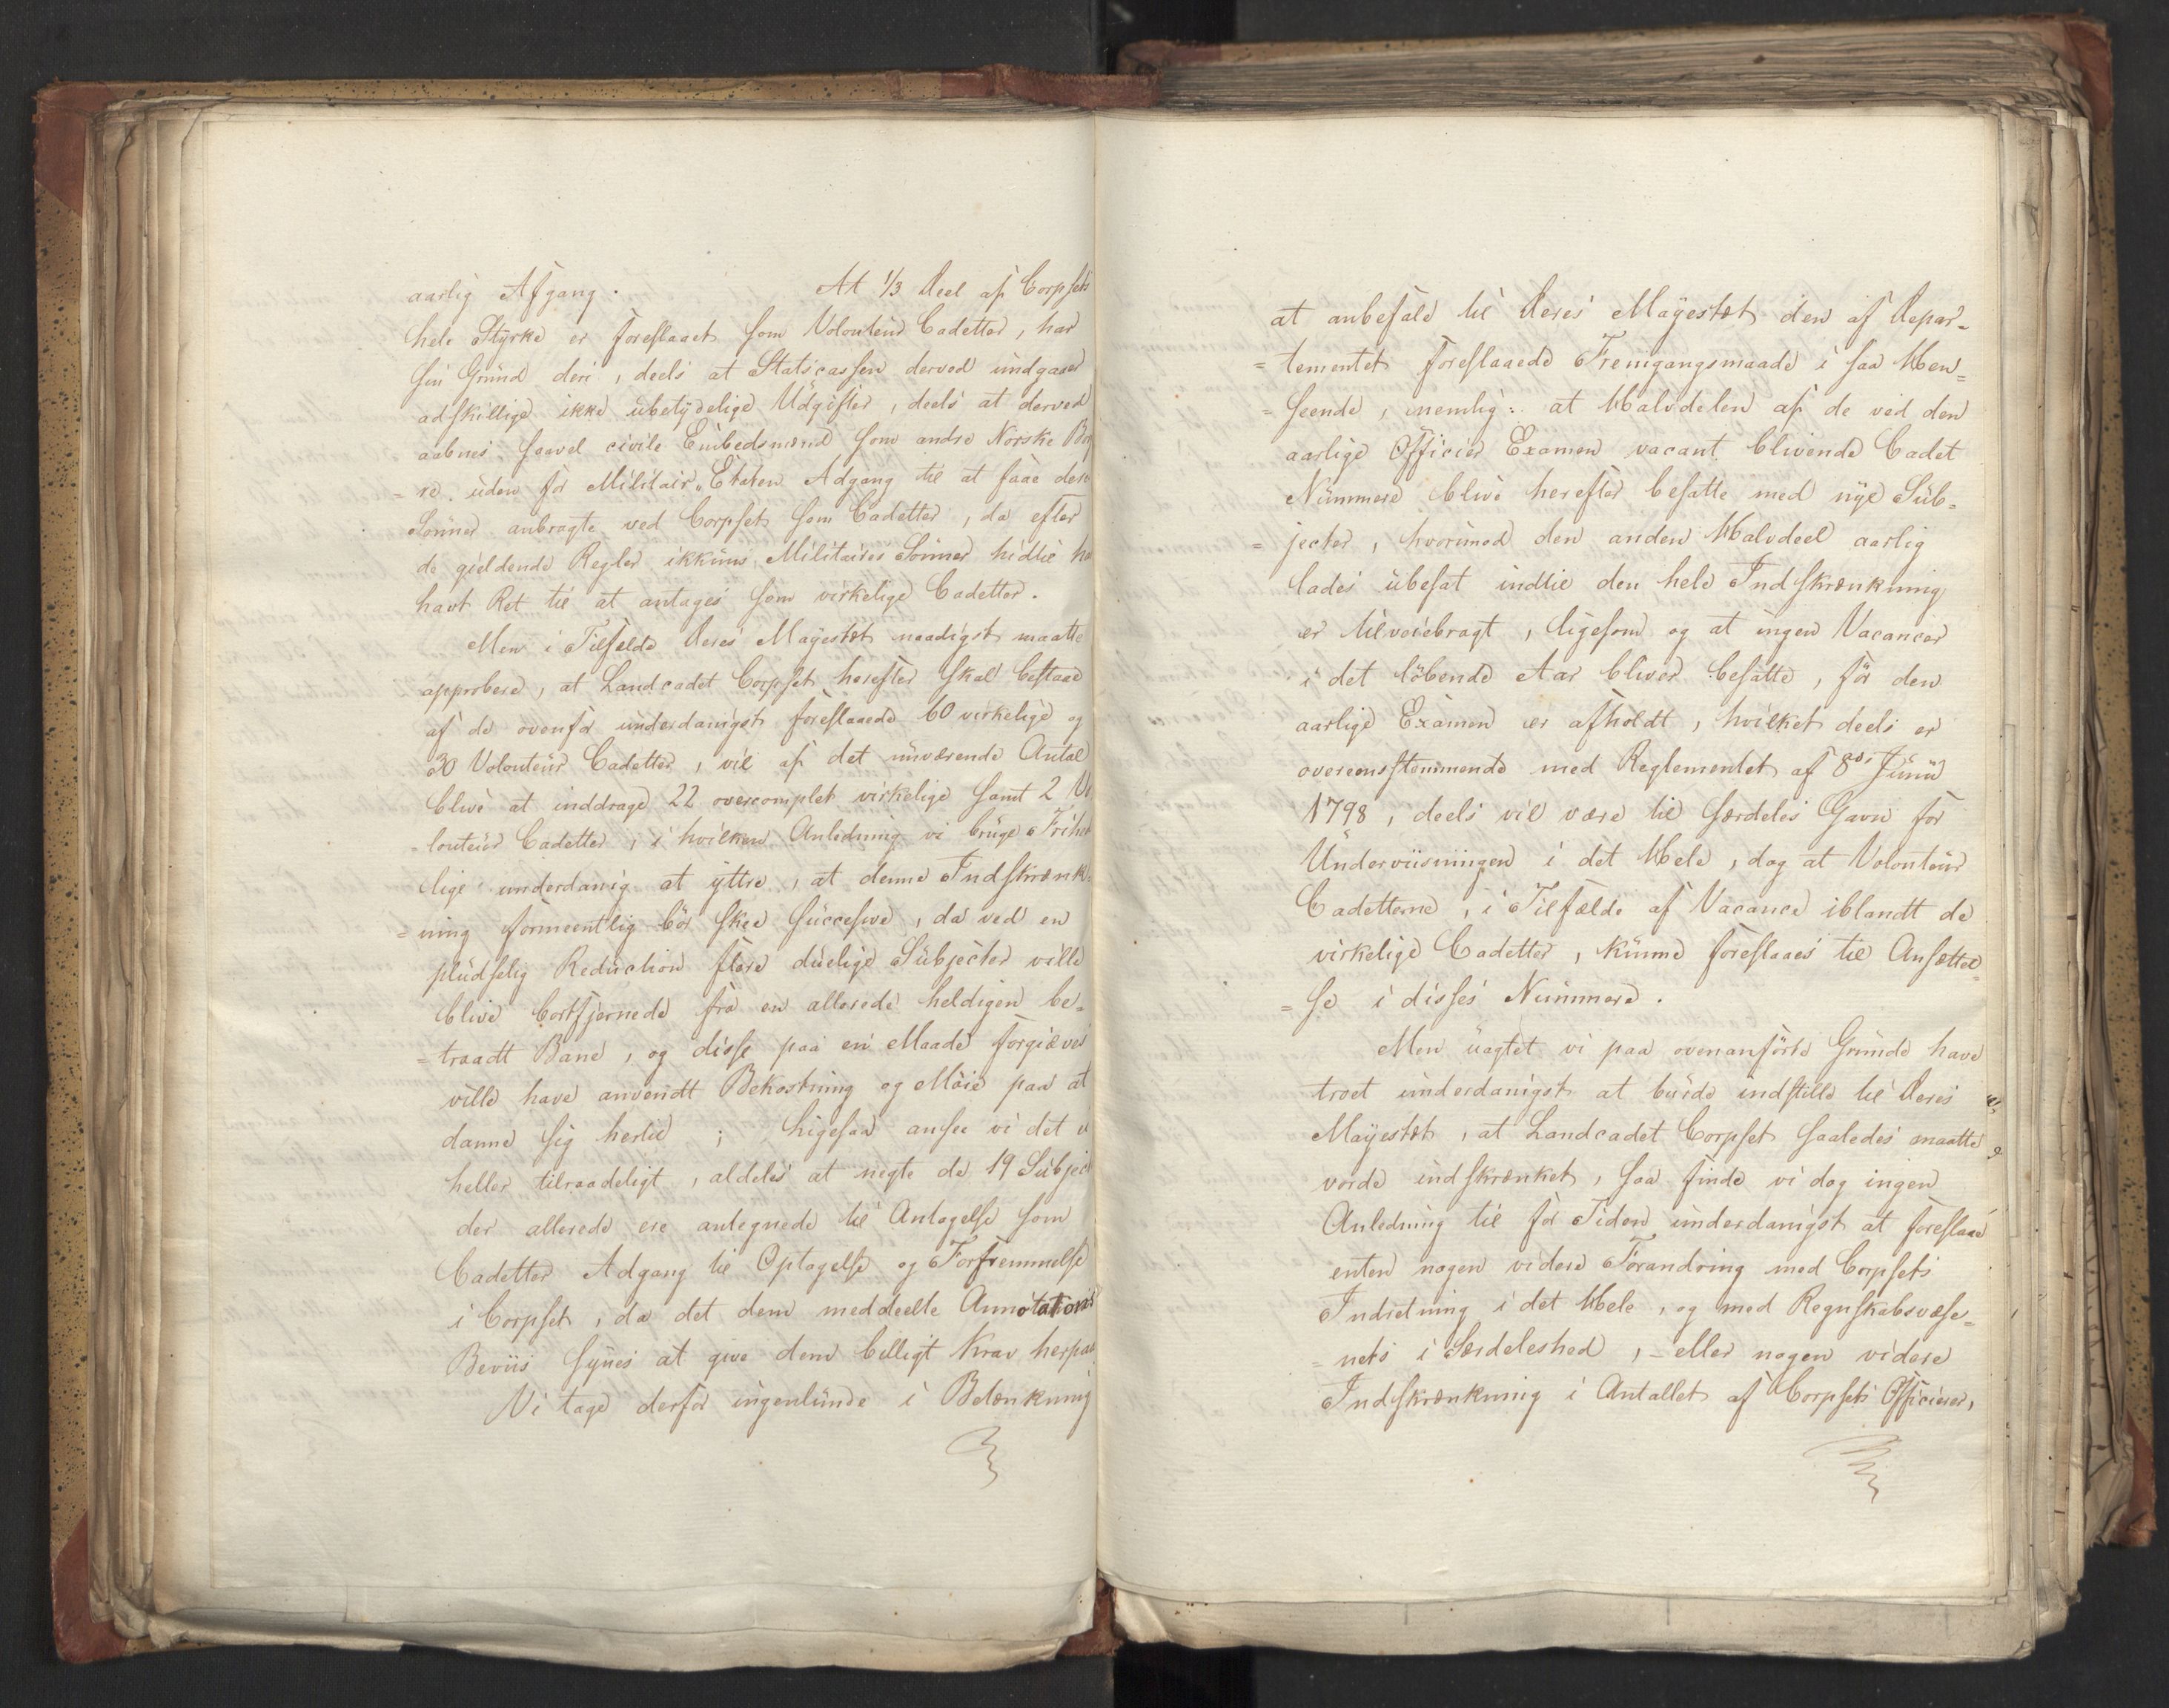 aarlig Afgang. At 1/3 Deel af Corpsets
hele Styrke er foreslaaet som Volonteur Cadetter, har
sin Grund deri, deels at Statscassen derved undgaaer
adskillige ikke ubetydelige Udgifter, deels at derved
aabnes saavel civile Embedsmænd som andre Norske Bor
=re uden for Militair-Etaten Adgang til at faae dere
Sönner anbragte ved Corpset som Cadetter, da efter
de gieldende Regler ikkuns Militaires Sönner hidtil ha
havt Ret til at antages som virkelige Cadetter.
Men i Tilfælde Deres Majestæt naadigst maatte
approbere, at Landcadet Corpset herefter skal bestaae
af de ovenfor underdanigst foreslaaede 60 virkelige og
30 Volonteur Cadetter, vil af det nuværende Antal
blive at inddrage 22 overcomplet virkelige samt 2 Vo
=lonteur Cadetter, i hvilken Anledning vi bruge Frihed
lige underdanig at yttre, at denne Indskrænk=
=ning formeentlig bör skee succesive, da ved en
pludselig Reduction flere duelige Subjecter ville
blive bortfjernede fra en allerede heldigen be=
=traadt Bane, og disse paa en Maade forgiæves
ville have anvendt Bekostning og Möie paa at
danne sig hertil; Ligesaa ansee vi det ei
heller tilraadeligt, aldeles at negte de 19 Subject
der allerede ere antegnede til Antagelse som
Cadetter Adgang til Optagelse og Forfremmelse
i Corpset, da det dem meddeelte Annotations
Beviis synes at give dem billigt Krav herpaa.
Vi tage derfor ingenlunde i Betænkning
at anbefale til Deres Majestæt den af Depar=
=tementet foreslaaede Fremgangsmaade i saa Hen=
=seende, nemlig: at Halvdelen af de ved den
aarlige Officier Examen vacant blivende Cadet
Nummere blive herefter besatte med nye Sub=
=jecter, hvorimod den anden Halvdeel aarlig
lades ubesat indtil den hele Indskrænkning
er tilveiebragt, ligesom og at ingen Vacancer
i det löbende Aar bliver besatte, för den
aarlige Examen er afholdt, hvilket deels er
overeensstemmende med Reglementet af 8de Junii
1798, deels vil være til særdeles Gavn for
Underviisningen i det Hele, dog at Volonteur
Cadetterne, i Tilfælde af Vacance iblandt de
virkelige Cadetter, kunne foreslaaes til Ansættel=
=se i disses Nummere.
Men uagtet vi paa ovenanförte Grunde have
troet underdanigst at burde indstille til Deres
Majestæt, at Landcadet Corpset saaledes maatte
vorde indskrænket, saa finde vi dog ingen
Anledning til for Tiden underdanigst at foreslaae
enten nogen videre Forandring med Corpsets
Indretning i det Hele, og med Regnskabsvæse=
=nets i Særdeleshed, - eller nogen videre
Indskrænkning i Antallet af Corpsets Officierer,